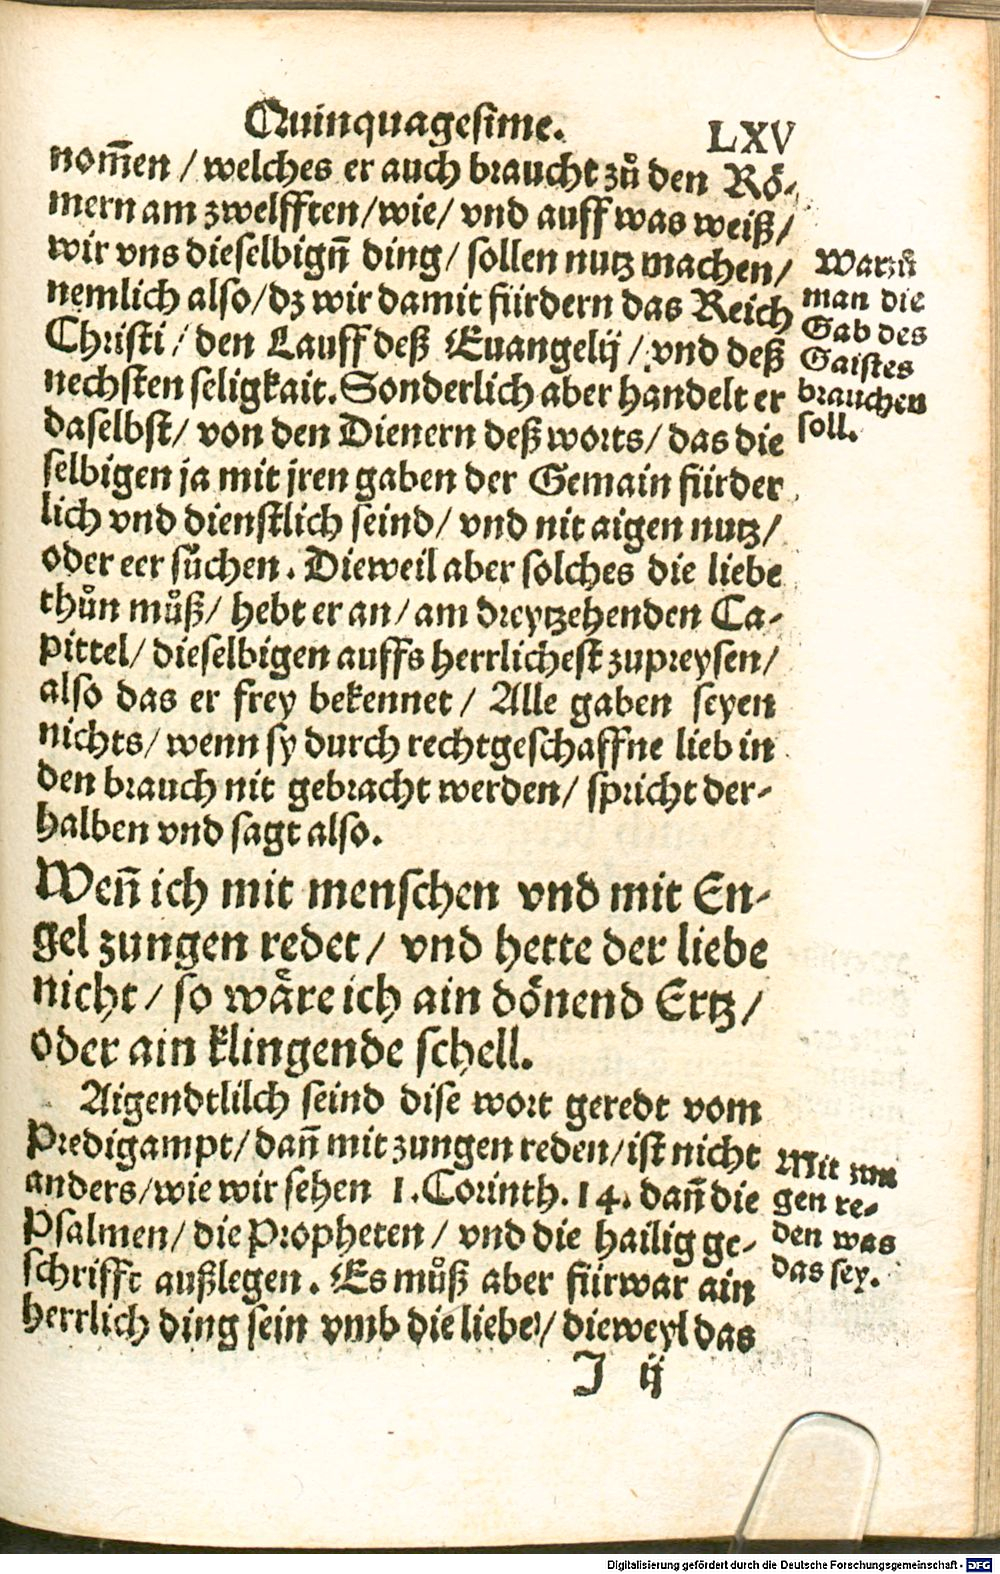 Quinquagesime. LXV
nom̃en / welches er auch braucht zů den Rö-
mern am zwelfften / wie / vnd auff was weiß /
wir vns dieselbign̄ ding / sollen nutz machen /
nemlich also / dz wir damit fürdern das Reich
Christi / den Lauff deß Euangelij / vnd deß
nechsten seligkait. Sonderlich aber handelt er
daselbst / von den Dienern deß worts / das die
selbigen ja mit jren gaben der Gemain fürder
lich vnd dienstlich seind / vnd nit aigen nutz /
oder eer sůchen. Dieweil aber solches die liebe
thůn můß / hebt er an / am dreytzehenden Ca-
pittel / dieselbigen auffs herrlichest zupreysen /
also das er frey bekennet / Alle gaben seyen
nichts / wenn sy durch rechtgeschaffne lieb in
den brauch nit gebracht werden / spricht der-
halben vnd sagt also.
Wen̄ ich mit menschen vnd mit En-
gel zungen redet / vnd hette der liebe
nicht / so wäre ich ain dönend Ertz /
oder ain klingende schell.
Aigendtlilch seind dise wort geredt vom
Predigampt / dan̄ mit zungen reden / ist nicht
anders / wie wir sehen 1. Corinth. 14. dan̄ die
Psalmen / die Propheten / vnd die hailig ge-
schrifft außlegen. Es můß aber fürwar ain
herrlich ding sein vmb die liebe / dieweyl das
J ij
Warzů
man die
Gab des
Gaistes
brauchen
soll.
Mit zun
gen re-
den was
das sey.
Digitalisierung gefördert durch die Deutsche Forschungsgemeinschaft - DFG